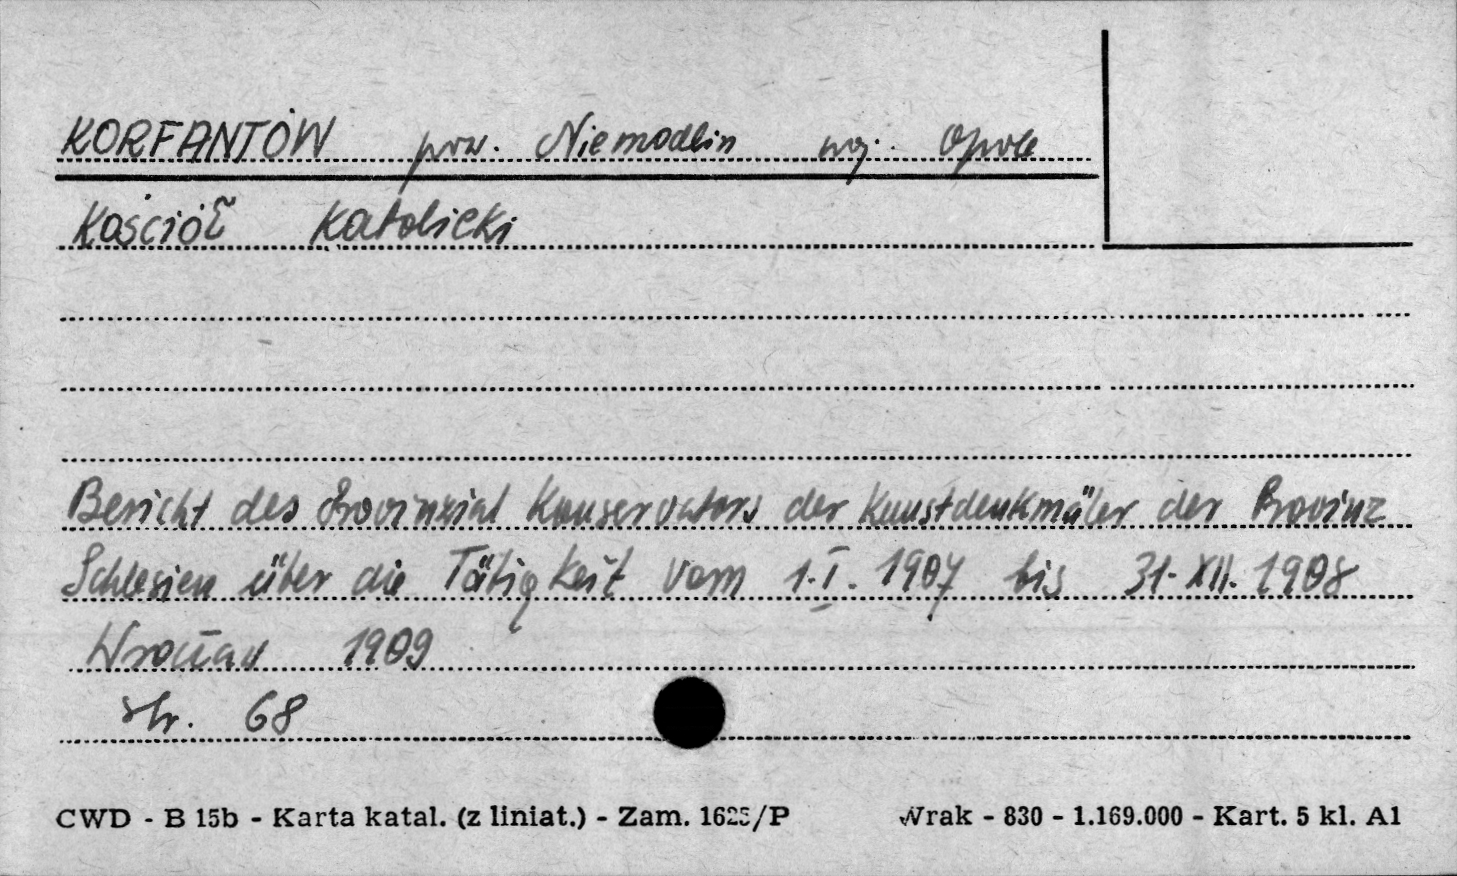 KORFANTÓW pow. Niemodlin woj. Opole
Kościół Katolicki
Bericht des Provinzial Konservators der Kunstdenkmäler der Provinz
Schlesien über die Tätigkeit vom 1.I. 1907 bis 31.XII. 1908
Wrocław 1909
str. 68
CWD - B 15b - Karta katal. (z liniat.) - Zam. 1625/P Wrak - 830 - 1.169.000 - Kart. 5 kl. A1